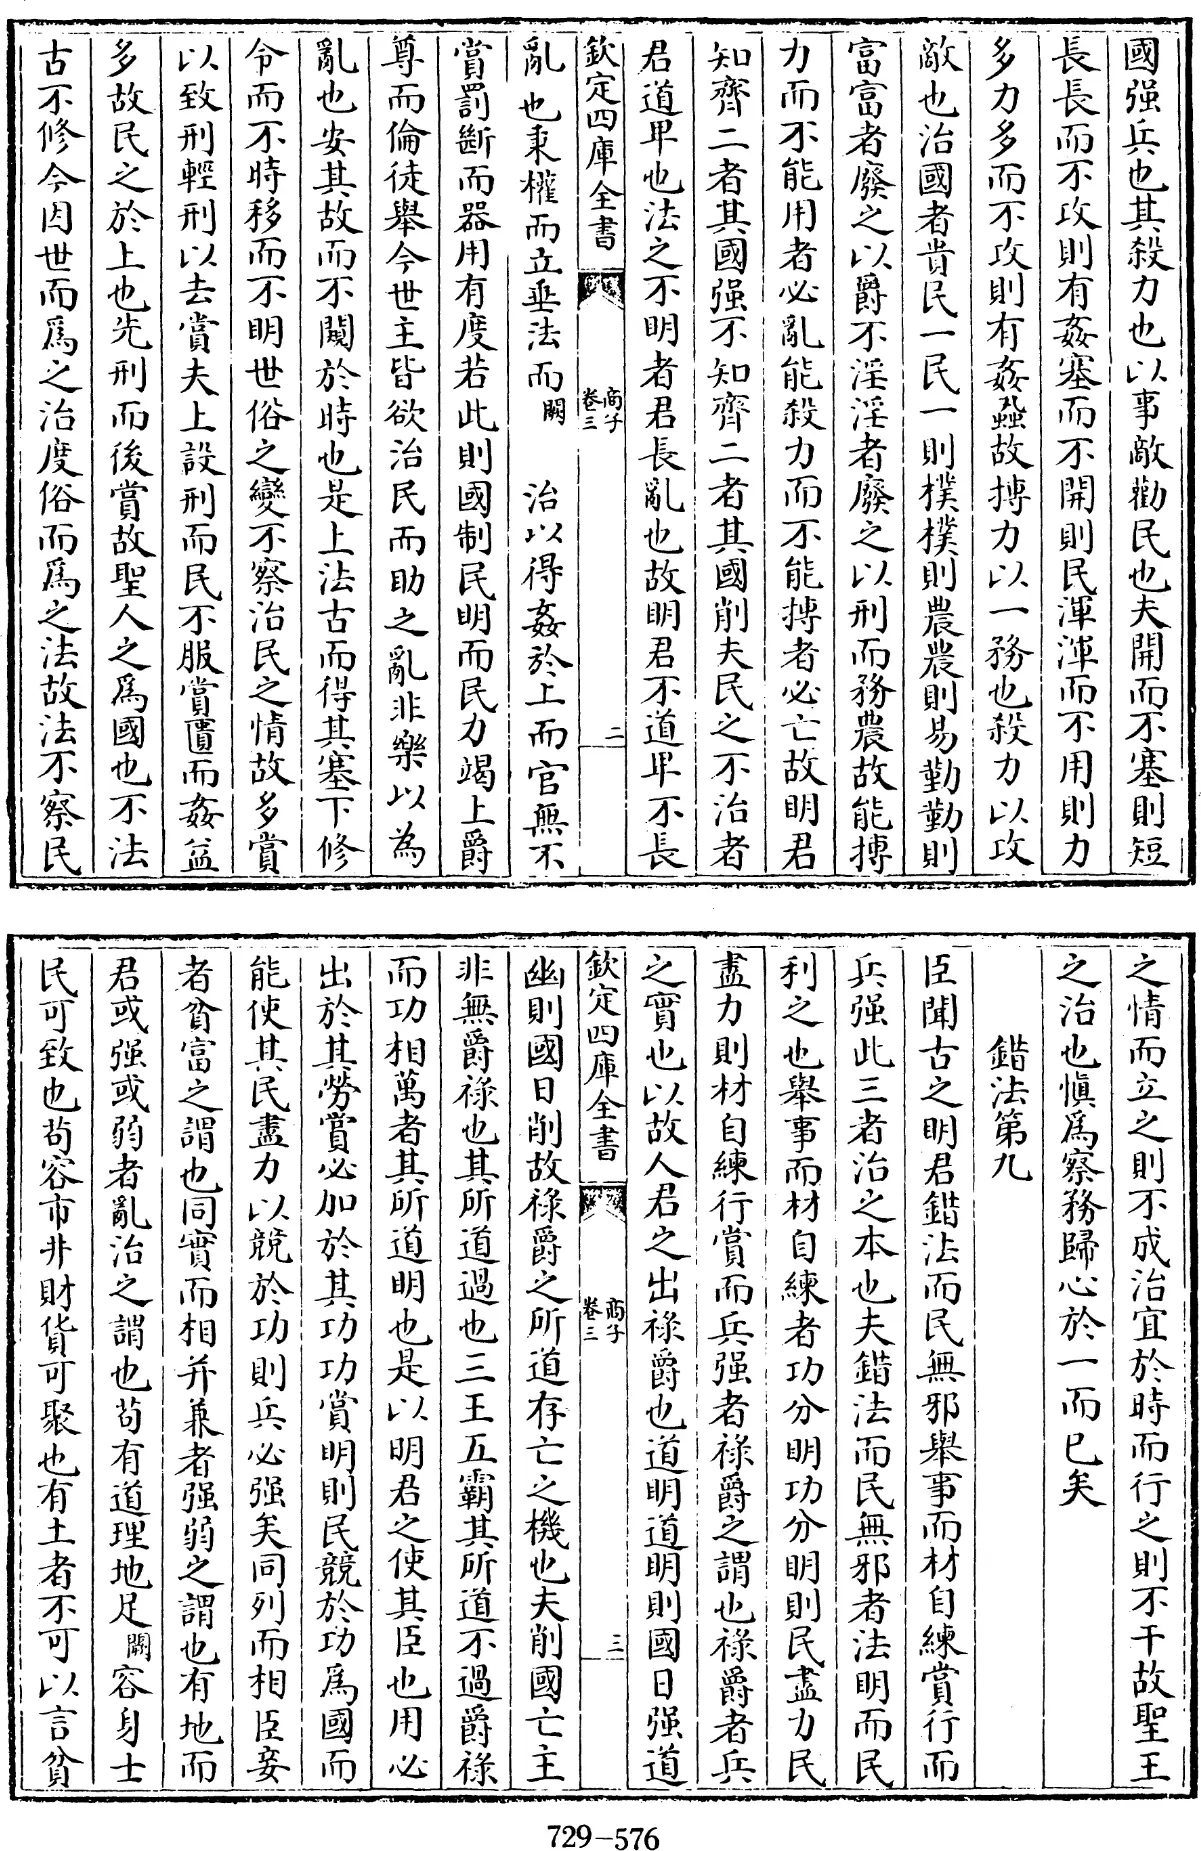 國强兵也其殺力也以事敵勸民也夫開而不塞則短
長長而不攻則有姦塞而不開則民渾渾而不用則力
多力多而不攻則有姦蝨故摶力以一務也殺力以攻
敵也治國者貴民一民一則樸樸則農農則易勤勤則
富富者廢之以爵不淫淫者廢之以刑而務農故能摶
力而不能用者必亂能殺力而不能摶者必亡故明君
知齊二者其國强不知齊二者其國削夫民之不治者
君道卑也法之不明者君長亂也故明君不道卑不長
欽定四庫全書
商子
卷三
二
亂也秉權而立垂法而闕治以得姦於上而官無不
賞罰斷而器用有度若此則國制民明而民力竭上爵
尊而倫徒舉今世主皆欲治民而助之亂非樂以為
亂也安其故而不闚於時也是上法古而得其塞下修
令而不時移而不明世俗之變不察治民之情故多賞
以致刑輕刑以去賞夫上設刑而民不服賞匱而姦益
多故民之於上也先刑而後賞故聖人之爲國也不法
古不修今因世而爲之治度俗而爲之法故法不察民
之情而立之則不成治宜於時而行之則不干故聖王
之治也慎爲察務歸心於一而已矣
錯法第九
臣聞古之明君錯法而民無邪舉事而材自練賞行而
兵强此三者治之本也夫錯法而民無邪者法明而民
利之也舉事而材自練者功分明功分明則民盡力民
盡力則材自練行賞而兵强者祿爵之謂也祿爵者兵
之實也以故人君之出祿爵也道明道明則國日强道
欽定四庫全書
商子
卷三
三
幽則國日削故祿爵之所道存亡之機也夫削國亡主
非無爵祿也其所道過也三王五霸其所道不過爵祿
而功相萬者其所道明也是以明君之使其臣也用必
出於其勞賞必加於其功功賞明則民競於功爲國而
能使其民盡力以競於功則兵必强矣同列而相臣妾
者貧富之謂也同實而相并兼者强弱之謂也有地而
君或强或弱者亂治之謂也苟有道理地足闕容身士
民可致也苟容市井財貨可聚也有土者不可以言貧
729-576